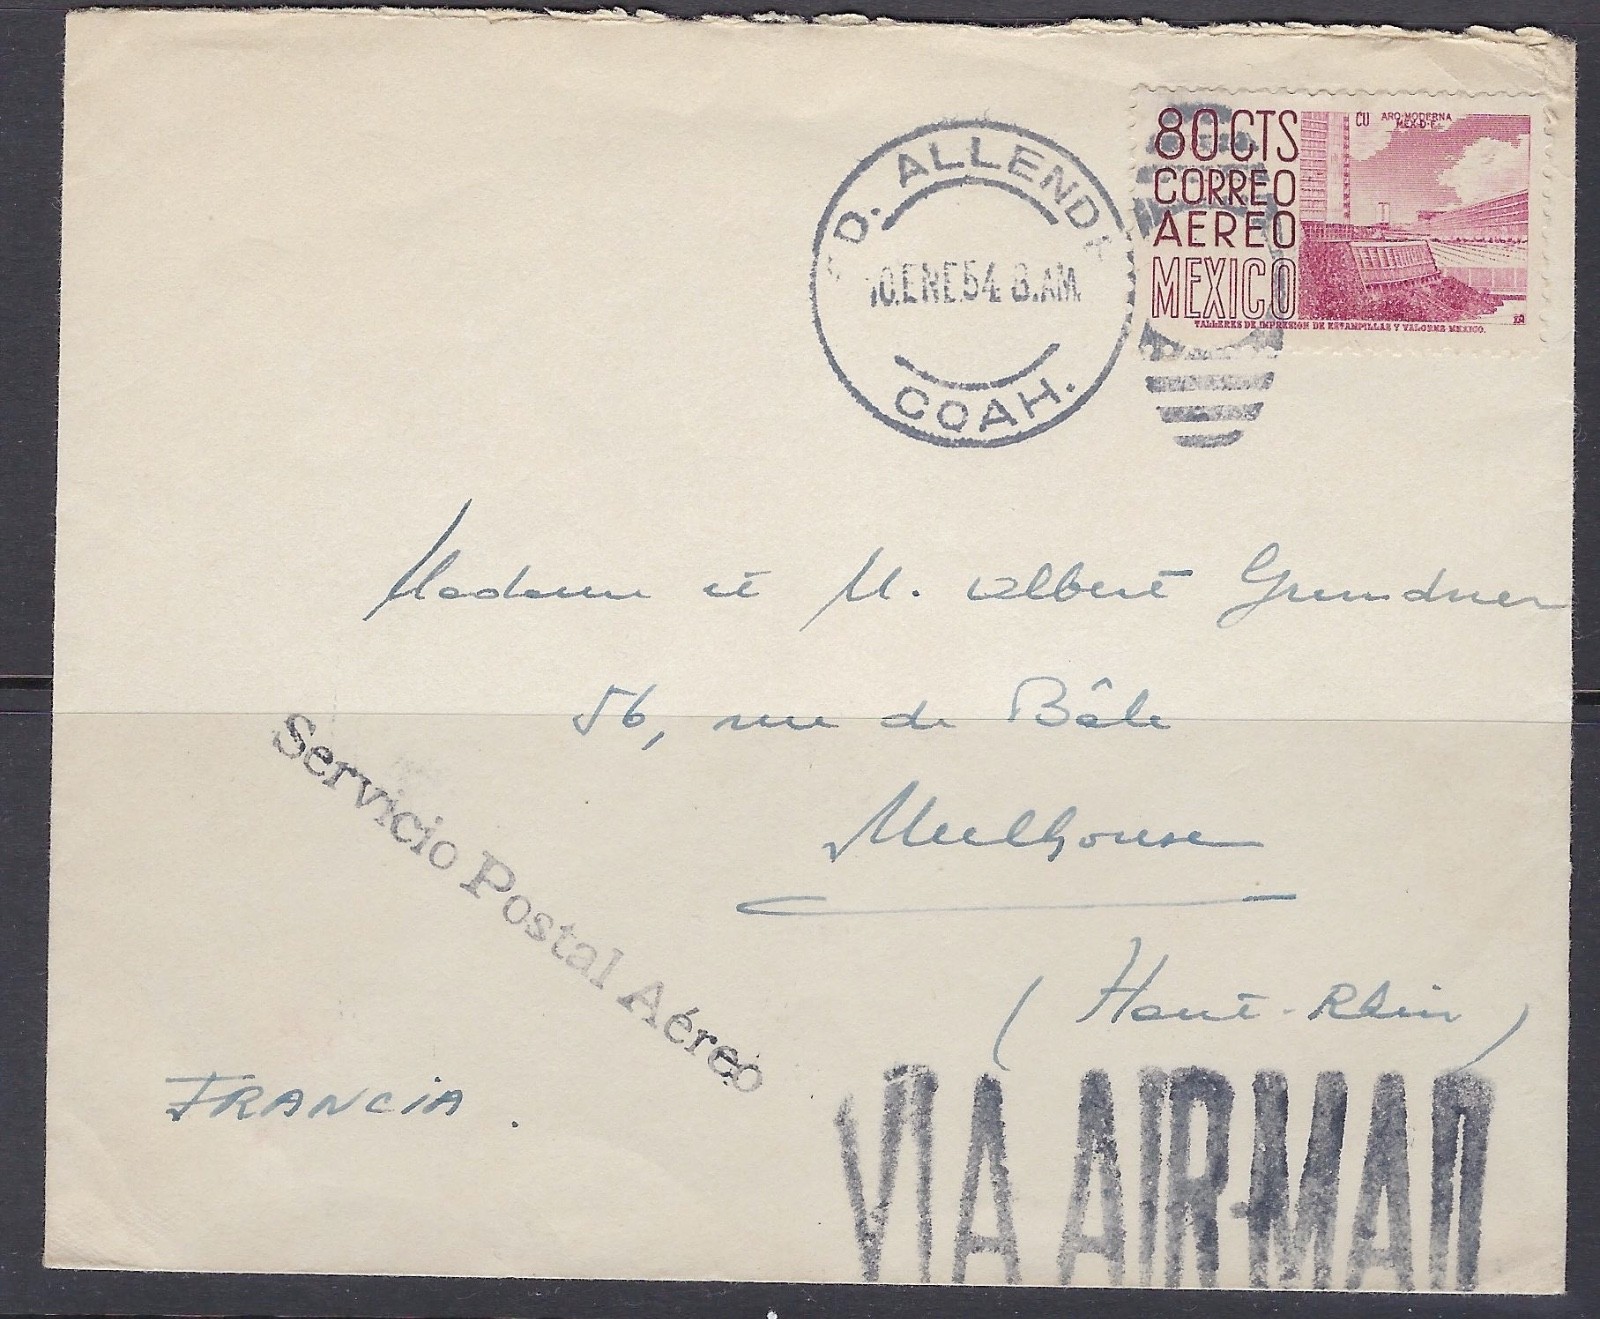 80 CTS
CORREO
AEREO
MEXICO
CU ARQ. MODERNA
MEX-D-F.
TALLERES DE IMPRESION DE ESTAMPILLAS Y VALORES MEXICO.
D. ALLENDE
10. ENE. 54. 8. AM.
COAH.
Madame et M. Albert Grundner
56, rue de Bâle
Mulhouse
(Haut-Rhin)
Servicio Postal Aéreo
FRANCIA.
VIA AIR-MAIL